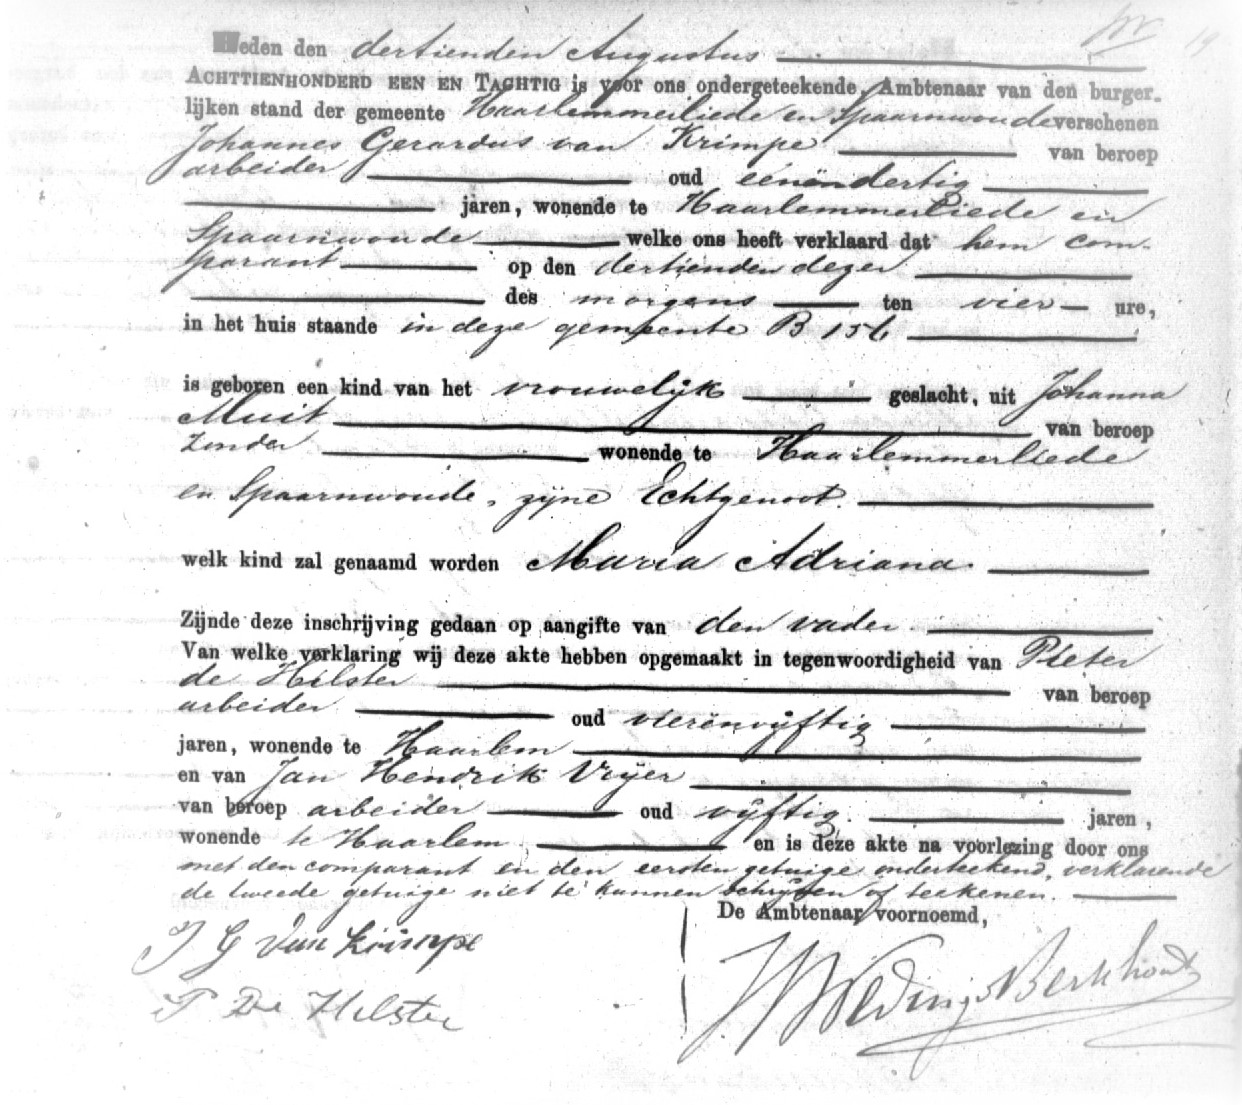 Heden den dertienden Augustus
ACHTTIENHONDERD EEN EN TACHTIG is voor ons ondergeteekende, Ambtenaar van den burger-
lijken stand der gemeente Haarlemmerliede en Spaarnwoude verschenen
Johannes Gerardus van Krimpe van beroep
arbeider oud eenëndertig
jaren, wonende te Haarlemmerliede en
Spaarnwoude welke ons heeft verklaard dat hem com-
parant op den dertienden dezer
des morgens ten vier ure,
in het huis staande in deze gemeente B 156
is geboren een kind van het vrouwelijk geslacht, uit Johanna
Muit van beroep
zonder wonende te Haarlemmerliede
en Spaarnwoude, zijne Echtgenoot.
welk kind zal genaamd worden Maria Adriana.
Zijnde deze inschrijving gedaan op aangifte van den vader
Van welke verklaring wij deze akte hebben opgemaakt in tegenwoordigheid van Pieter
de Hilster van beroep
arbeider oud vierenvijftig
jaren, wonende te Haarlem
en van Jan Hendrik Vrijer
van beroep arbeider oud vijftig. jaren,
wonende te Haarlem en is deze akte na voorlezing door ons
met den comparant en den eersten getuige onderteekend, verklarende
de tweede getuige niet te kunnen schrijven of teekenen.
De Ambtenaar voornoemd,
J G van Krimpe
P De Hilster